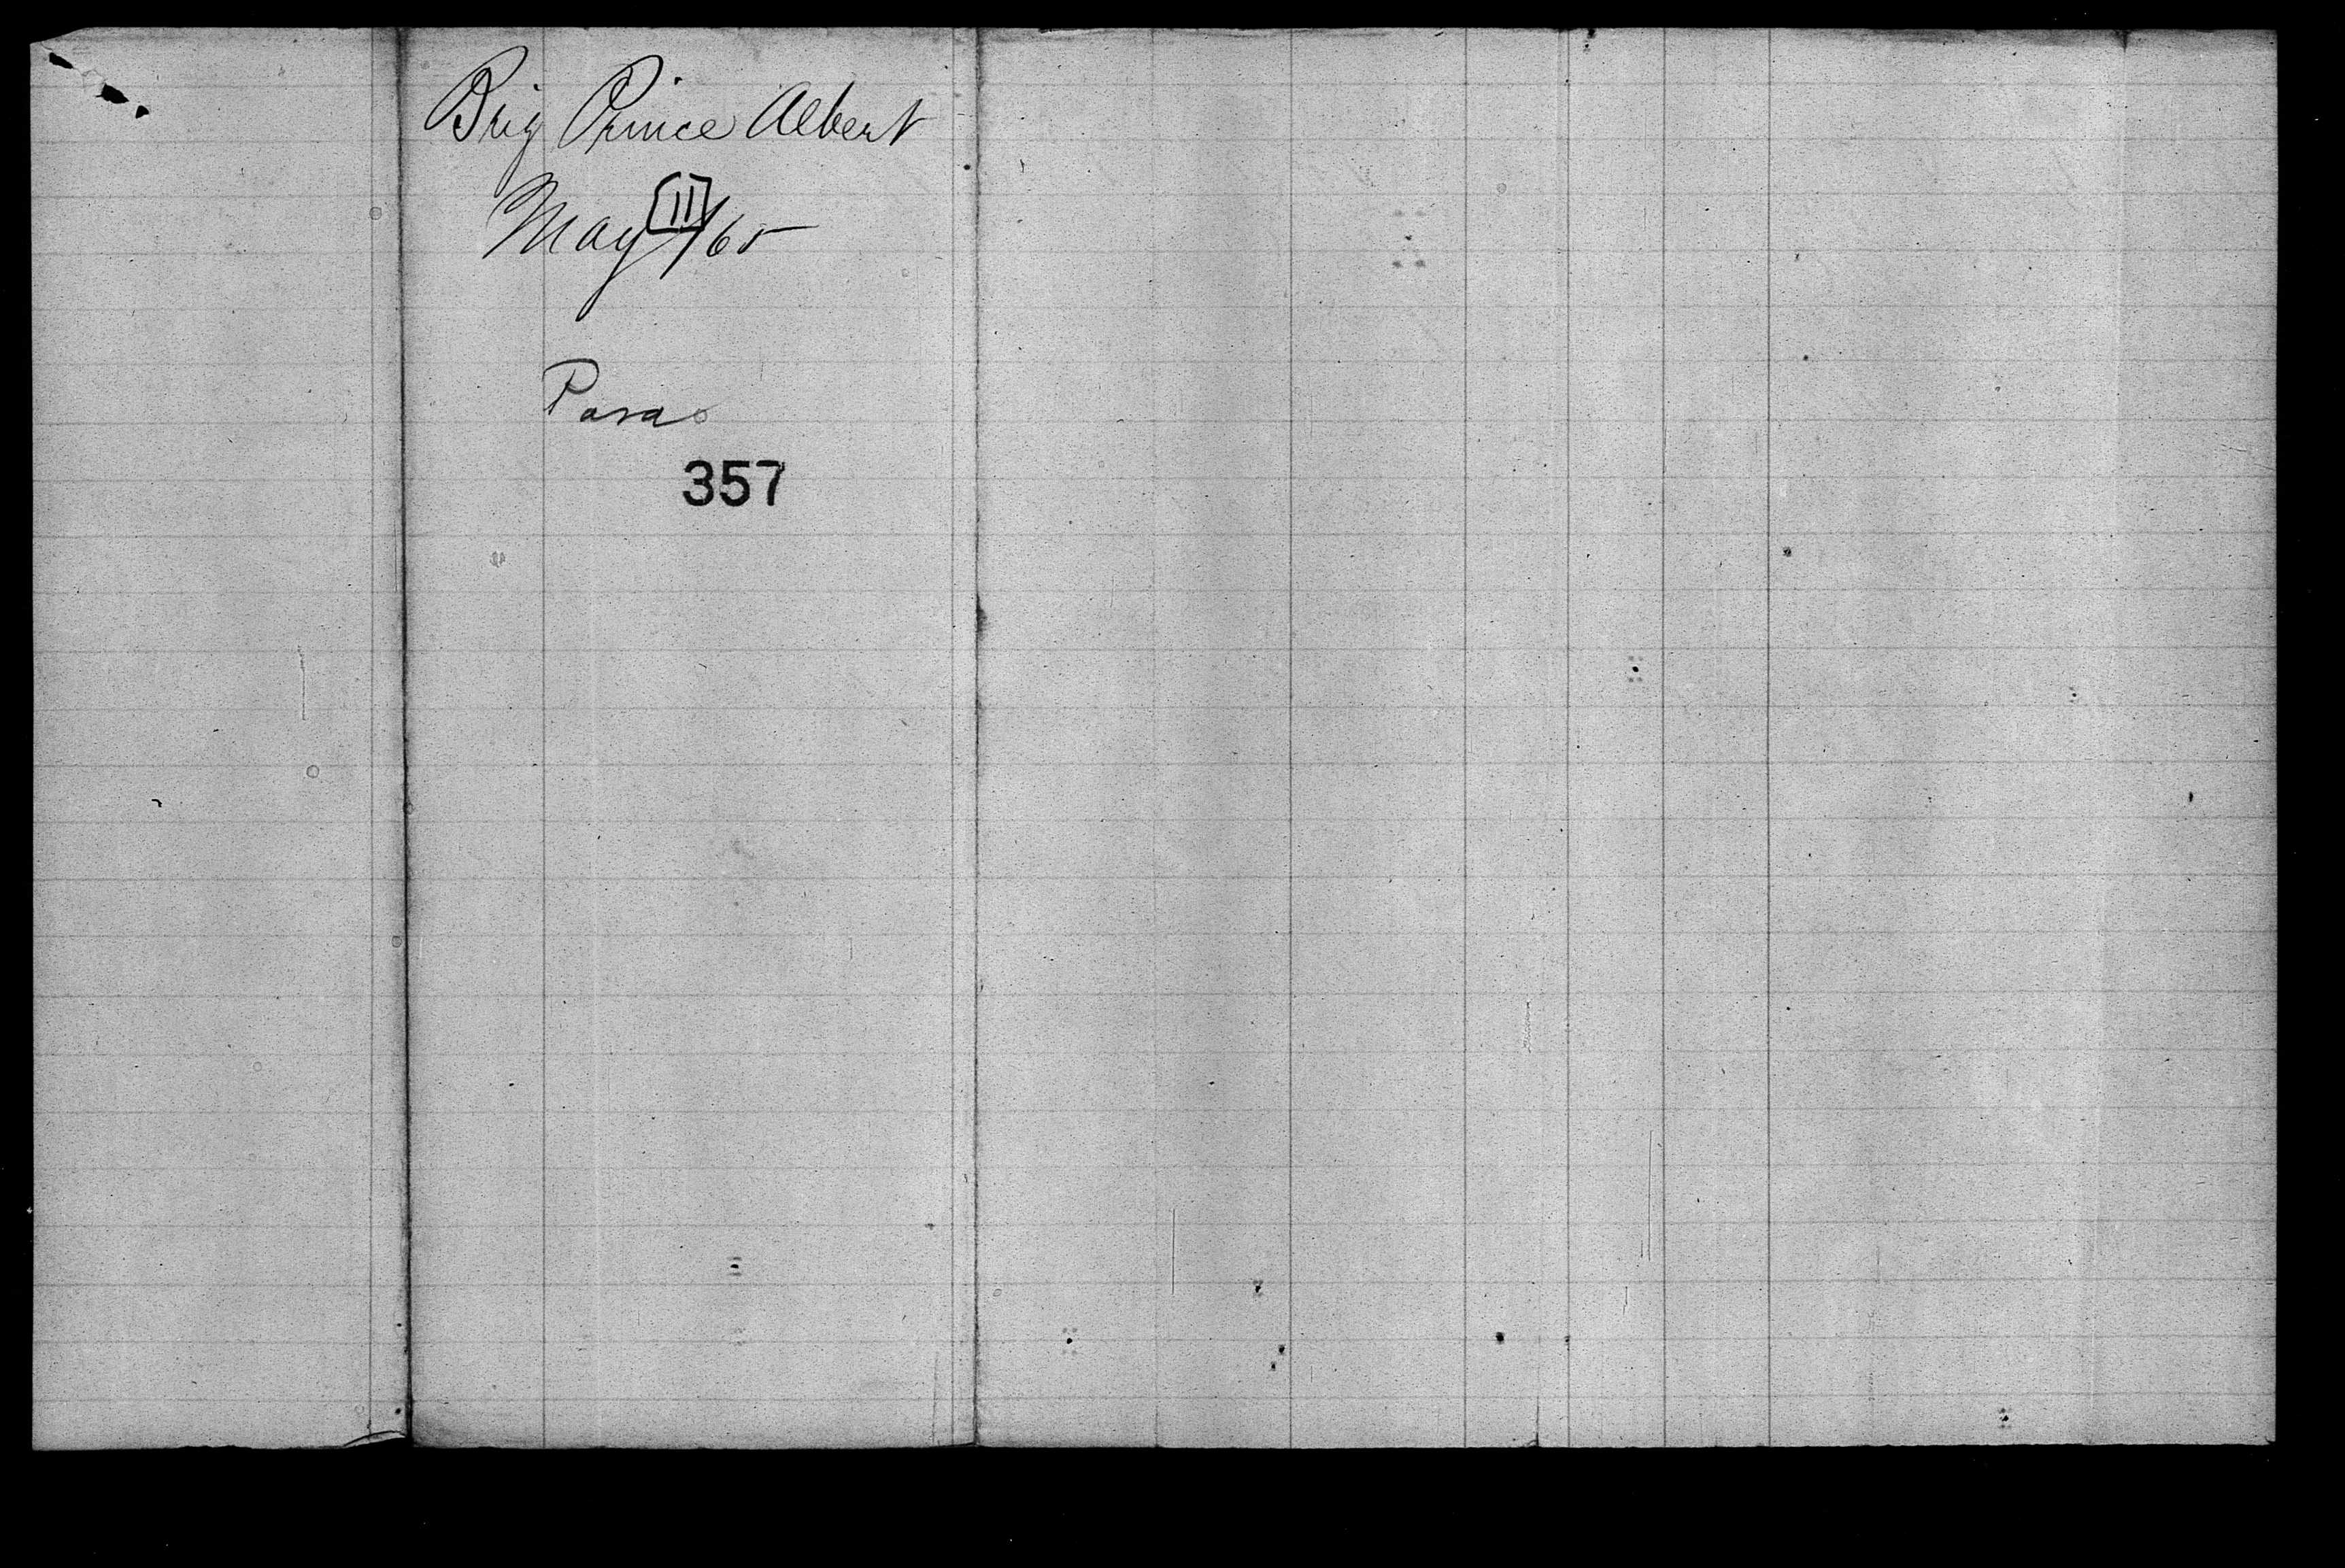 Brig Prince Albert
May [11]/65
Para
357